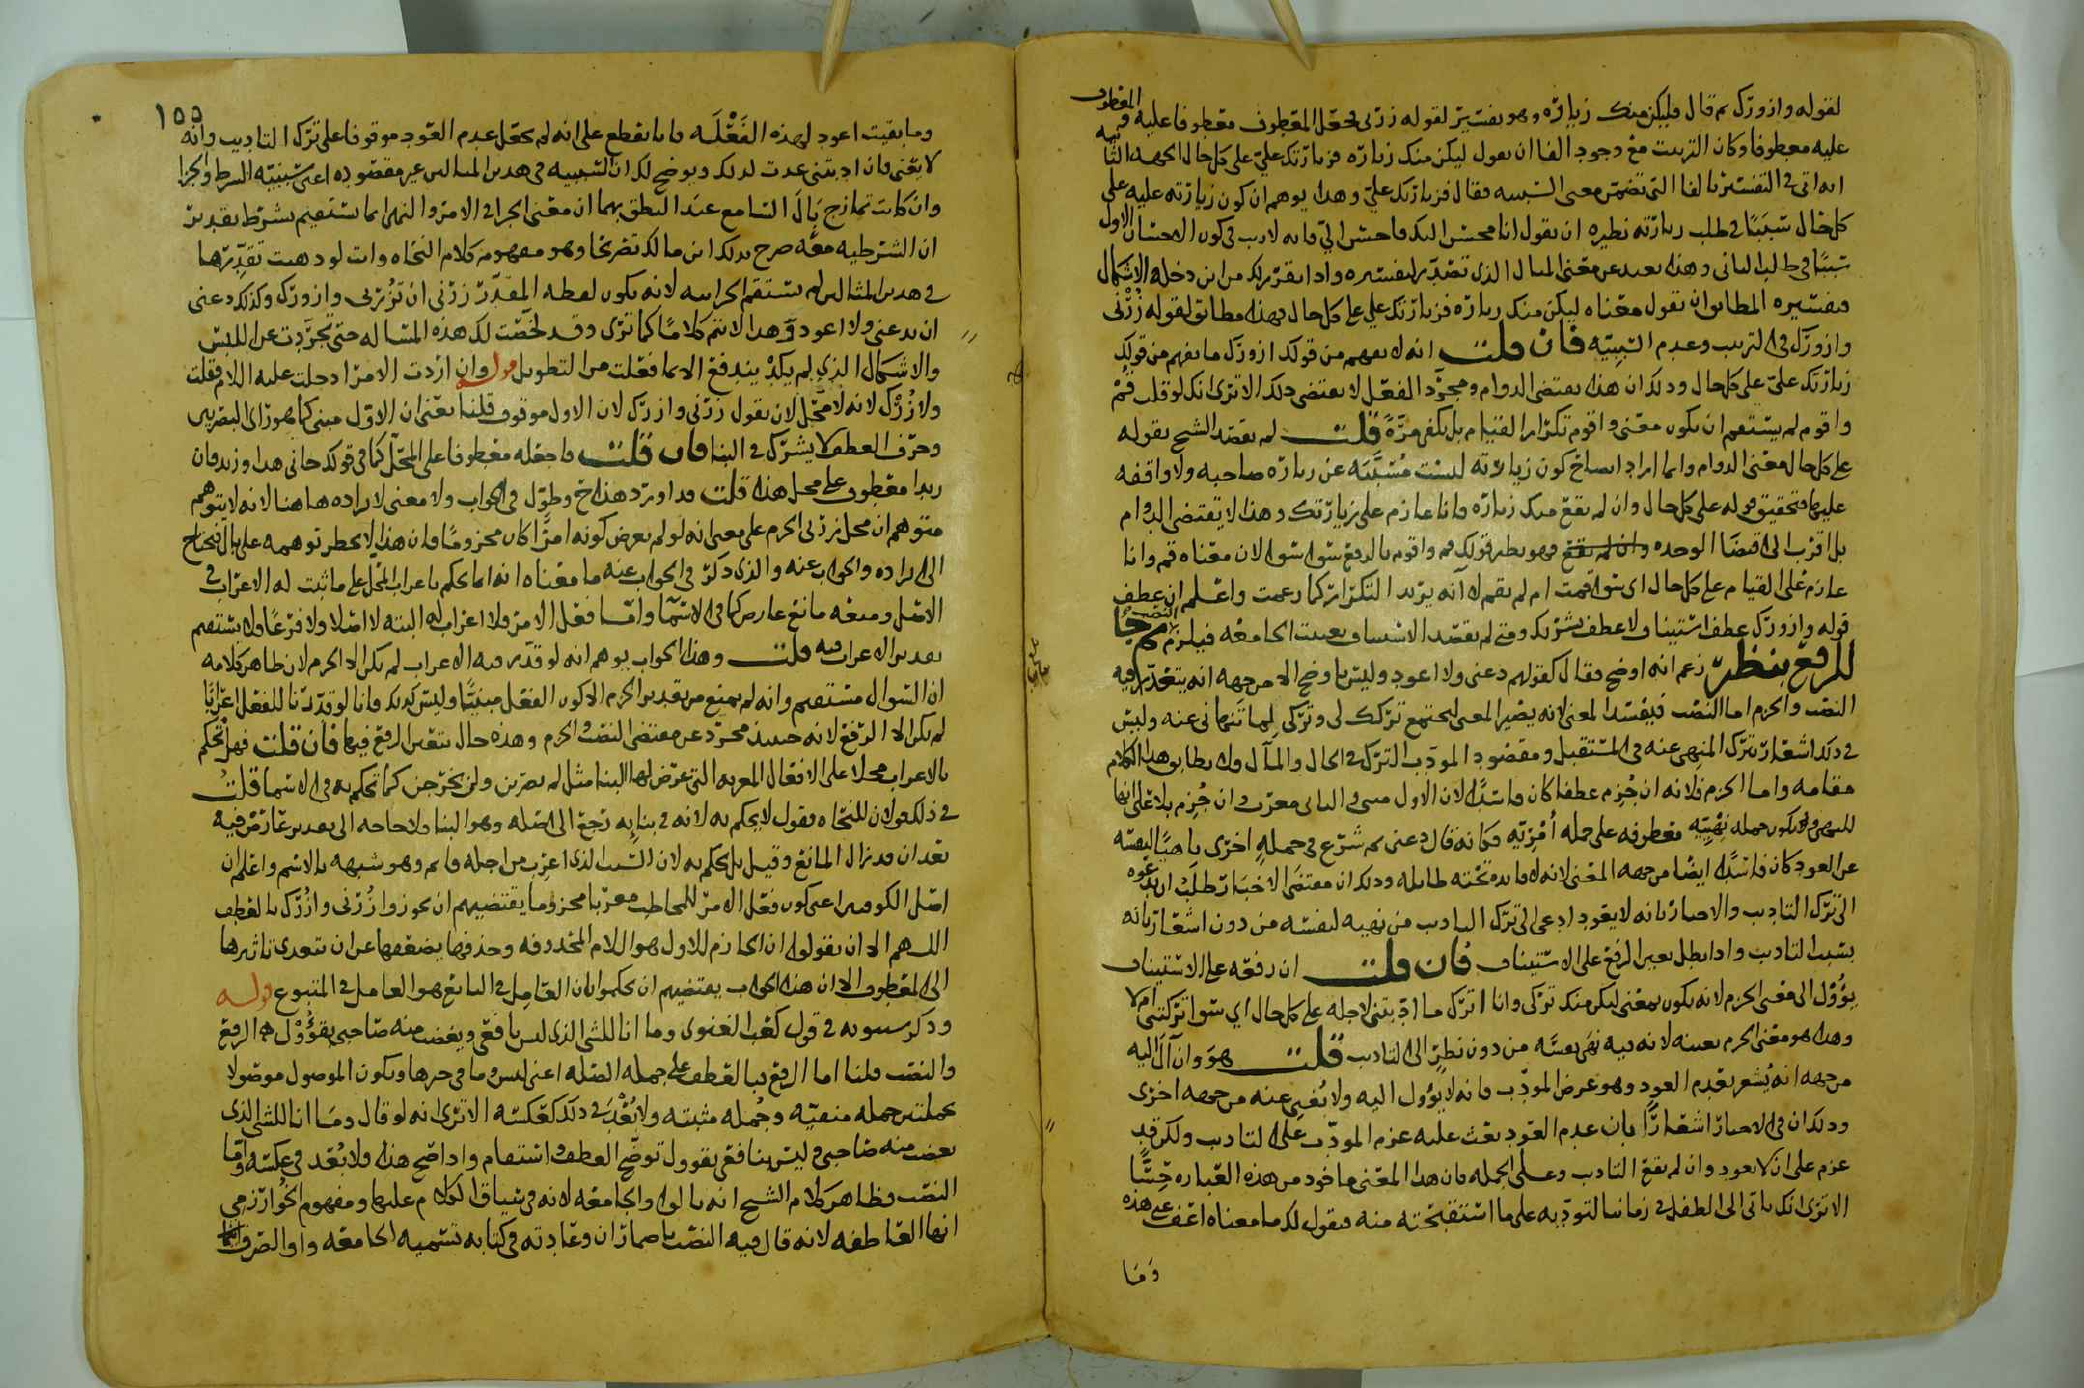 لقوله وازورك ثم قال فليكن منك زيارة وهو بفسير لقوله زرنى فجعل المعطوف معطوفا عليه والمعطوف
عليه معطوفا وكان الترتيب مع وجود الفا ان يقول ليكن منك زياره فزيارتك علي على كل حال الجهه الثانيه
انه اتى فى التفسير بالفا التى تضمن معنى التسبيب فقال فزيارتك علي وهذا يوهم ان كون زيارته عليه على
كل حال سببا فى طلب زيارته نظيره ان يقول انا محسن اليك فاحسن الي فانه لاريب فى كون الاحسان الاول
سببا فى طلب الثانى وهذا بعيد عن معنى المثال الذى تصدر لتفسيره واذا تقرر لك من اين دخله الاشكال
فتفسيره المطابق ان يقول معناه ليكن منك زياره فزيارتك علي على كل حال فهذا مطابق لقوله زرنى
وازورك فى الترتيب وعدم السببيه فان قلت انه لا يفهم من قولك ازورك ما يفهم من قولك
زيارتك علي على كل حال وذلك ان هذا يقتضى الدوام ومجرد الفعل لا يقتضى ذلك الا ترى انك لو قلت قم
واقوم لم يستقم ان يكون معنى واقوم تكرار القيام بل يكفى مرة قلت لم يقصد الشيخ بقوله
على كل حال معنى الدوام وانما اراد ايضاح كون زيارته ليست مسببه عن زياره صاحبه ولا واقفه
عليها فتحقيق قوله على كل حال وان لم يقع منك زياره فانا عازم على زيارتك وهذا لا يقتضى الدوام
بل اقرب الى اقتضا الوحده وان لم يقع فهو نظير قولك قم واقوم بالرفع سوا سوا لان معناه قم وانا
عازم على القيام على كل حال اى سوا قمت ام لم تقم لا انه يريد التكرار كما زعمت واعلم ان عطف
قوله وازورك عطف استيناف لا عطف تشريك ومتى لم يقصد الاستيناف تعينت الجامعه فيلزم النصب
للرفع بنظر زعم انه اوضح فقال كقولهم دعنى ولا اعود وليس باوضح الا من جهه انه يتعذر فيه
النصب والجزم اما النصب فيفسد المعنى لانه يصير المعنى ليجتمع تركك لى وتركى لما تنهانى عنه وليس
فى ذلك اشعار بترك المنهى عنه فى المستقبل ومقصود المودب الترك فى الحال والمآل ولا يطابق هذا الكلام
مقامه واما الجزم فلانه ان جزم عطفا كان فاسدا لان الاول مبنى والثانى معرب وان جزم بلا على انها
للنهى ولتكون جمله نهييه معطوفه على جمله امريه فكانه قال دعنى ثم شرع فى جمله اخرى ناهيا لنفسه
عن العود كان فاسدا ايضا من جهه المعنى لانه لا فايده تحته طايله وذلك ان مقتضى الاخبار طلب ان يدعوه
الى ترك التاديب والاخبار بانه لا يعود ادعى الى ترك التاديب من نهيه لنفسه من دون اشعار بانه
بسبب التاديب واذا بطل تعين الرفع على الاستيناف فان قلت ان رفعه على الاستيناف
يؤول الى معنى الجزم لانه يكون بمعنى ليكن منك تركى وانا اترك ما ادبتنى لاجله على كل حال اي سوا تركتنى ام لا
وهذا هو معنى الجزم بعينه لانه فيه نهى نفسه من دون نظر الى التاديب قلت هو وان آل اليه
من جهه انه يشعر بعدم العود وهو غرض المودب فانه لا يؤول اليه ولا يغنى عنه من جهه اخرى
وذلك ان فى الاخبار اشعارا بان عدم العود بعث عليه عزم المودب على التاديب ولكن قد
عزم على ان لا يعود وان لم يقع التاديب وعلى الجمله فان هذا المعنى ماخوذ من هذه العباره حسا
الا ترى انك تاتى الى الطفل فى زماننا لتودبه على ما استقبحته منه فيقول لك ما معناه اعف عن هذه
وما
١٥٥
وما بقيت اعود لهذه الفعله فانا نقطع على انه لم يجعل عدم العود موقوفا على ترك التاديب وانه
لا يعنى فان ادبتنى عدت لذلك ويوضح لك ان التسبيب فى هذين المثالين غير مقصود اعنى سببيه الشرط والجزا
وان كانت تمازج بال السامع عند النطق بهما ان معنى الجزا فى الامر والنهى انما يستقيم بشرط تقدير
ان الشرطيه معه صرح بذلك ابن مالك تصريحا وهو مفهوم كلام النحاه وانت لو ذهبت تقدرها
فى هذين المثالين لم يستقم الجزا بيه لانه يكون لفظه المقدر زرنى ان تزرنى وازورك وكذلك دعنى
ان تدعنى ولا اعود وهذا لا يتم كلاما كما ترى وقد لخصت لك هذه المساله حتى تجردت عن اللبس
والاشكال الذى لم يكد يندفع الا بما فعلت من التطويل قوله وان اردت الامر ادخلت عليه اللام فقلت
ولازرك لانه لا محل لان يقول زرنى وازرك لان الاول موقوف قلنا يعنى ان الاول مبنى كما هو راى البصريين
وحرف العطف لا يشرك فى البنا فان قلت فاجعله معطوفا على المحل كما فى قولك جانى هذا وزيد فان
زيدا معطوف على محل هذا قلت قد اورد هذا خ وطول فى الجواب ولا معنى لايراده هاهنا لانه لا يتوهم
متوهم ان محل زرنى الجزم على معنى انه لو لم يعرض كونه امرا كان مجزوما فان هذا لا يخطر توهمه على بال فيحتاج
الى ايراده والجواب عنه والذى ذكر فى الجواب عنه ما معناه انه انما يحكم باعراب المحل على ما ثبت له الاعراب فى
الاصل ومنعه مانع عارض كما فى الاسما واما فعل الامر فلا اعراب له البته لا اصلا ولا فرعا ولا يستقيم
تقدير الاعراب فيه قلت وهذا الجواب يوهم انه لو قدر فيه الاعراب لم يكن الا الجزم لان ظاهر كلامه
ان السوال مستقيم وانه لم يمنع من تقدير الجزم الا كون الفعل مبنيا وليس كذلك فانا لو قدرنا للفعل اعرابا
لم يكن الا الرفع لانه حينئذ مجرد عن مقتضى النصب والجزم وهذه حال يتعين الرفع فيها فان قلت فهل تحكم
بالاعراب محلا على الافعال المعربه التى عرض لها البنا مثل لم يضربن ولن يخرجن كما تحكم به فى الاسما قلت
فى ذلك قولان للنحاه فقول لا يحكم به لانه فى بنايه رجع الى اصله وهو البنا ولا حاجه الى تقدير عارض فيه
بعد ان قد زال المانع وقيل بل يحكم به لان السبب الذى اعرب من اجله قايم وهو شبهه بالاسم واعلم ان
اصل الكوفيين اعنى كون فعل الامر للمخاطب معربا مجزوما يقتضيهم ان يجوزوا زرنى وازرك بالعطف
اللهم الا ان يقولوا ان الجازم للاول هو اللام المحذوفه وحذفها يضعفها عن ان يتعدى تاثيرها
الى المعطوف الا ان هذا الجواب يقتضيهم ان يحكموا بان العامل فى التابع هو العامل فى المتبوع قوله
وذكر سيبويه فى قول كعب الغنوى وما انا للشى الذى ليس نافعى ويغضب منه صاحبى بقؤول الرفع
والنصب قلنا اما الرفع فبالعطف على جمله الصله اعنى ليس وما فى حيزها ويكون الموصول موصولا
بجملتين جمله منفيه وجمله مثبته ولا بعد فى ذلك كعكسه الا ترى انه لو قال وما انا للشى الذى
يغضب منه صاحبى وليس بنافعى بقوول توضح العطف واستقام واذا صح هذا ولا بعد فى عكسه واما
النصب فظاهر كلام الشيخ انه بالواو الجامعه لانه فى سياق الكلام عليها ومفهوم الخوارزمى
انها العاطفه لانه قال فيه النصب باضمار ان وعادته فى كتابه تسميه الجامعه واو الصرف